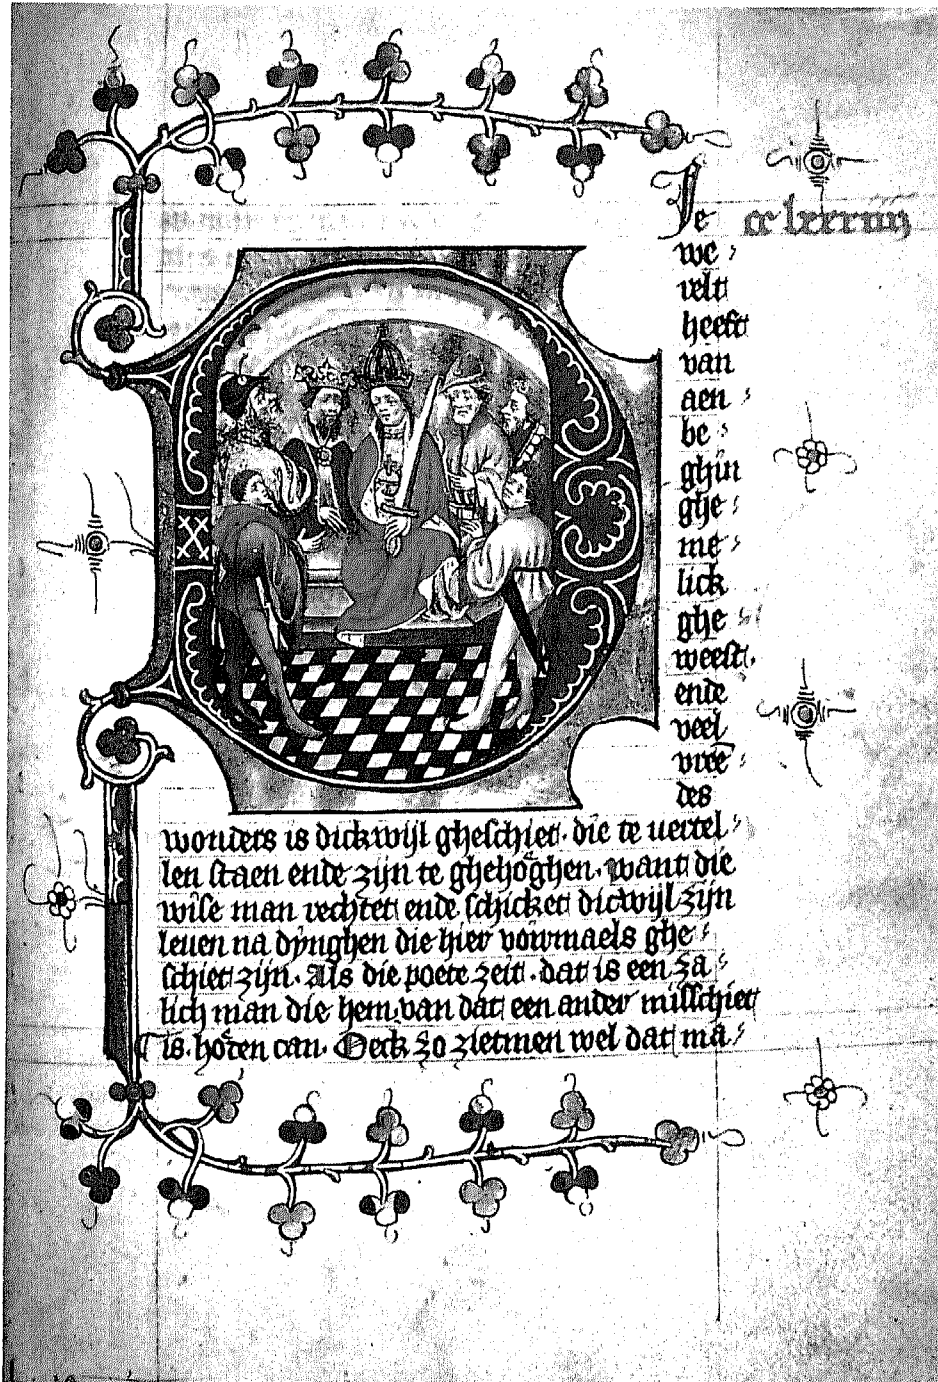 Je
cc lxxxiiij
we
velt
heeft
van
aen
be
ghin
ghe
me
lick
ghe
weest.
ende
veel
vree
des
wonders is dickwijl gheschiet. die te vertel
len staen ende zijn te ghehoghen. want die
wise man rechtet ende schicket dicwijl zijn
leuen na dynghen die hier voirmaels ghe
schiet zijn. Als die poete zeit. dat is een za
lich man die hem van dat een ander misschiet
is. hoeden can. Oeck zo zietmen wel dat ma